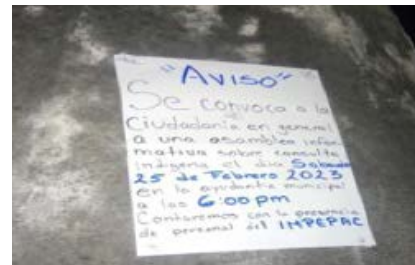 "AVISO"
Se convoca a la
Ciudadania en general
a una asamblea infor
mativa sobre consulta
indigena el dia Sabado
25 de Febrero 2023
en la ayudantia municipal
a las 6:00 pm
Contaremos con la presencia
de personal del IMPEPAC